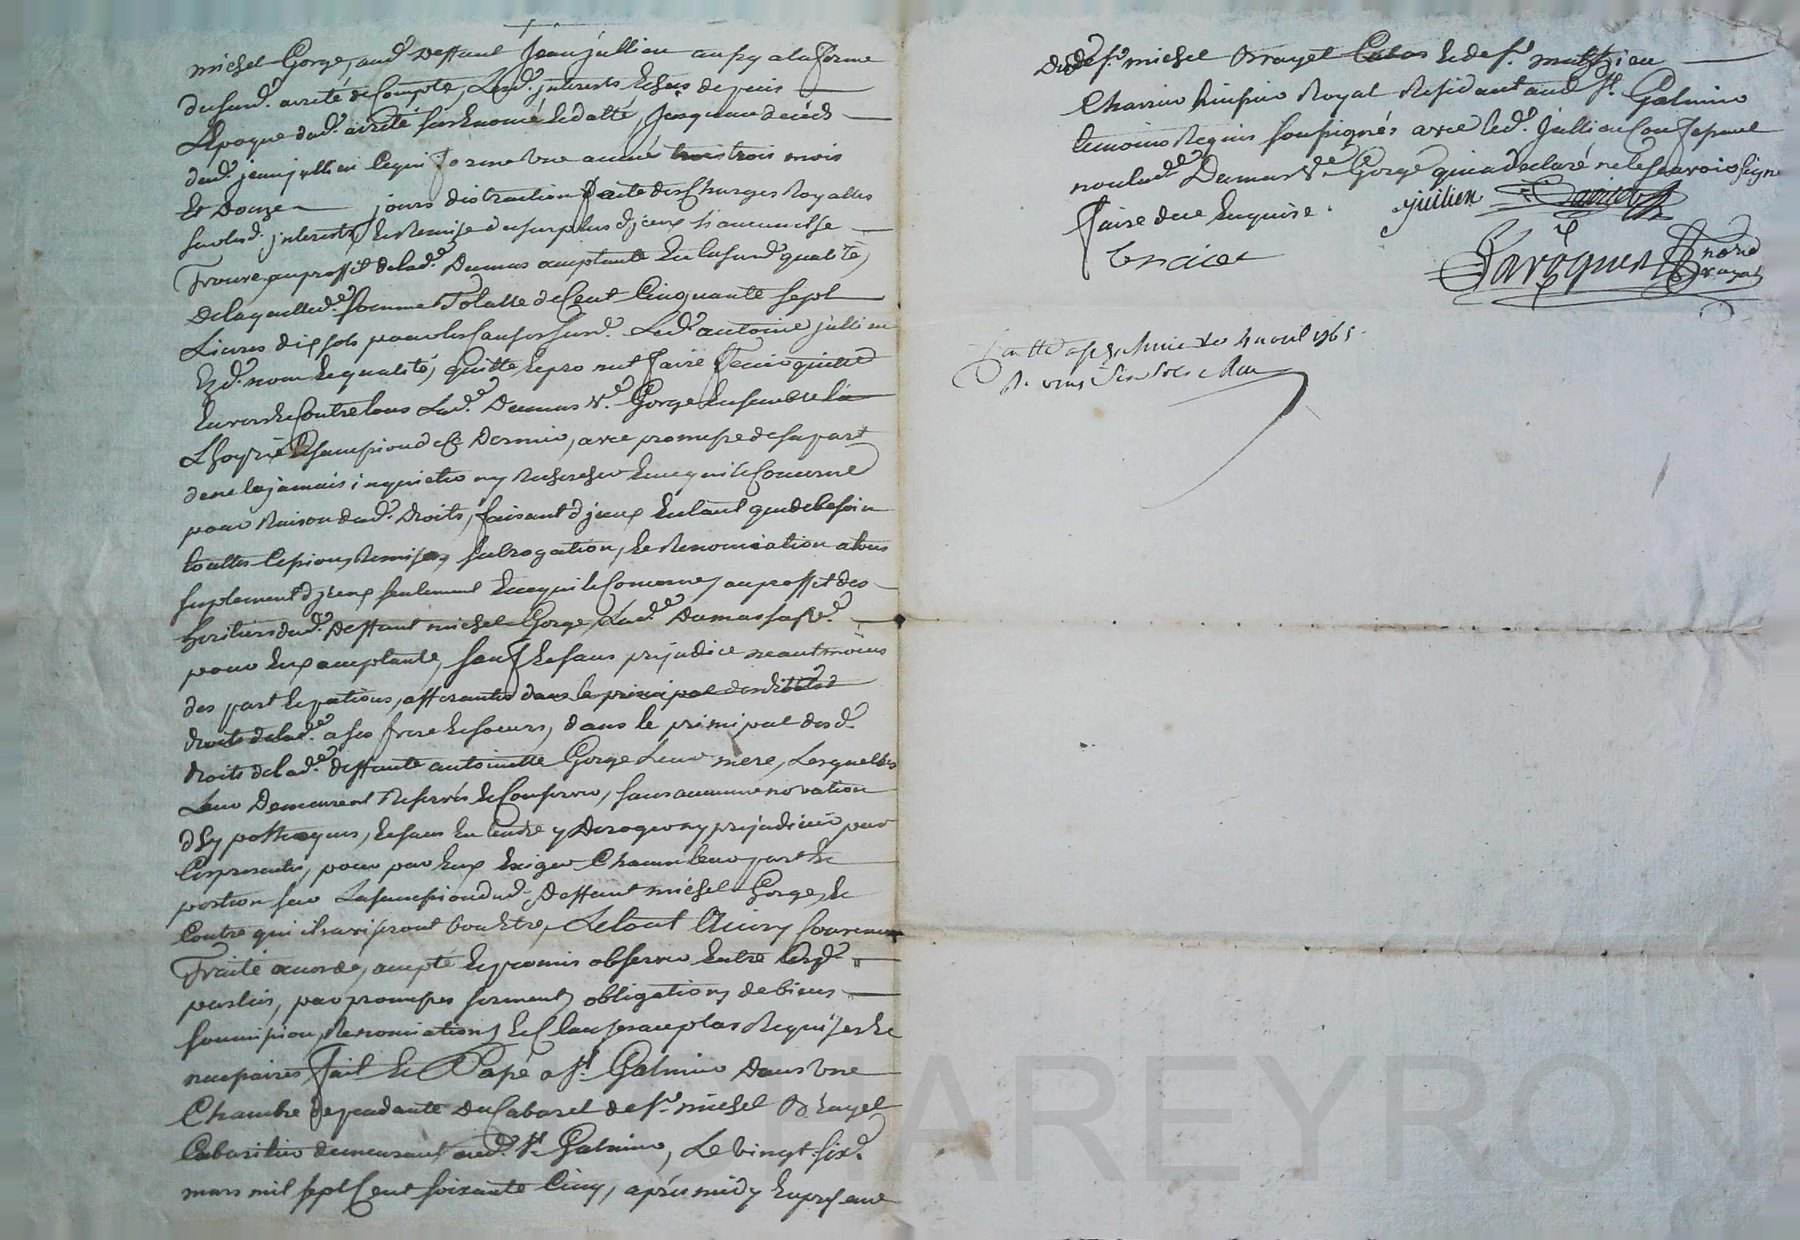 michel Gorge, aud.t deffunt jean jullien ausy a la forme
du surd.t arreté de Compte, Les d.s interests Echus depuis
L'Epoque dud.t arreté susEnoncé Et datté, jusquau deceds
dud.t jean jullien Ce qui forme Une année trois mois
Et Douze jours distraction faite des Charges Royalles
sur les d.s interests, Et Remise du surplus d'jceux si aucun il se
Trouve, au proffit de lad.e Dumas aceptante En la surd.e qualité,
De laquelle d.e somme Totalle de Cent Cinquante sept
Livres dix sols pour les Causes surd.s Led.t antoine jullien
Esd.s nom Et qualité, quitte, Et promet faire Tenir quitte
Envers Et Contre tous Lad.e Dumas v.e Gorge Ensemble la
L'hoyrie Et sucession de Ce Dernier, avec promesse de sa part
de ne les jamais inquietter ny Rechercher En ce qui le Concerne
pour Raison dud.t Droits, faisant d'jceux En tant que de besoin
touttes Cessions, Remises, subrogation, Et Renonciation a tous
suplement d'jceux seulement En ce qui le Concerne, au proffit des
heritiers dud.t Deffunt michel Gorge, Lad.e Dumas sa v.e
pour Eux aceptante, sauf Et sans prejudice neantmoins
des part Et portions, afferantes dans le principal desdittes
droits de lad.e a ses frere Et soeurs, dans le principal desd.s
droits de lad.e deffunte antoinette Gorge Leur mere, Lesquelles
Leur Demeurent Reservés Et Conservés, sans aucune novation
d'hypotheques, Et sans Entendre y Deroger ny prejudicier par
Ces presentes, pour par Eux Exiger Chacun leur part Et
portion sur La sucession dud.t Deffunt michel Gorge, Et
Contre qui ils aviseront bon Etre, Le tout Ainsy Convenu
Traité acordé, acepté Et promis observer Entre lesd.s
parties, par promesses serment, obligations de biens
soumission, Renonciations, Et Clauses au plus Requises Et
necessaires fait Et Passé a S.t Galmier Dans Une
Chambre dependante Du Cabaret de s.r michel Brayet
Cabaretier demeurant aud.t S.t Galmier, Le vingt six.e
mars mil sept Cent soixante Cinq, aprés midy En presence
Dud.t s.r michel Brayet Et de s.r mathieu
Charrin huissier Royal Residant aud.t S.t Galmier
temoins Requis soussignés avec led.t jullien Con
non lad.e Dumas V.e Gorge qui a declaré ne le scavoir signer
faire de ce Enquise.
jullien
Brayet
Baroques
no.re Royal
4 avril 1765
CHAREYRON